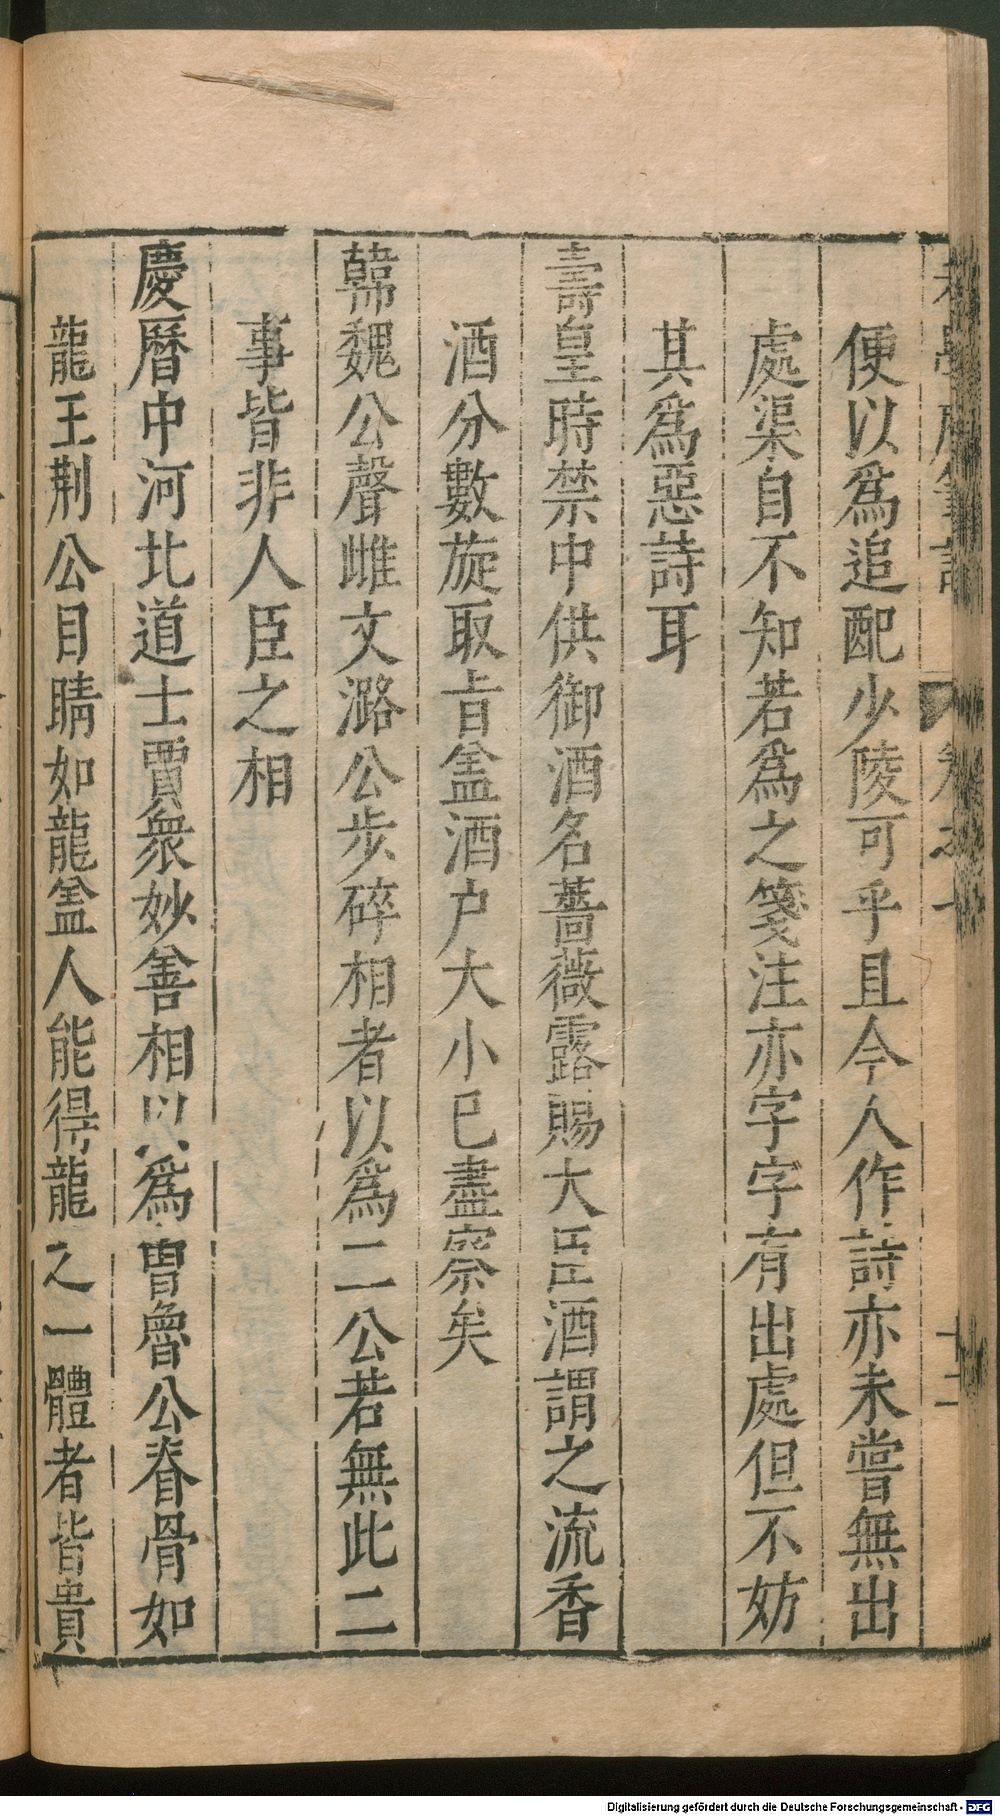 便以爲追配少陵可乎且今人作詩亦未嘗無出
處渠自不知若爲之箋注亦字字有出處但不妨
其爲惡詩耳
壽皇時禁中供御酒名薔薇露賜大臣酒謂之流香
酒分數旋取旨盖酒户大小已盡察矣
韓魏公聲雌文潞公步碎相者以爲二公若無此二
事皆非人臣之相
慶曆中河北道士賈衆妙善相以爲曾魯公脊骨如
龍王荆公目睛如龍盖人能得龍之一體者皆貴
Digitalisierung gefördert durch die Deutsche Forschungsgemeinschaft - DFG